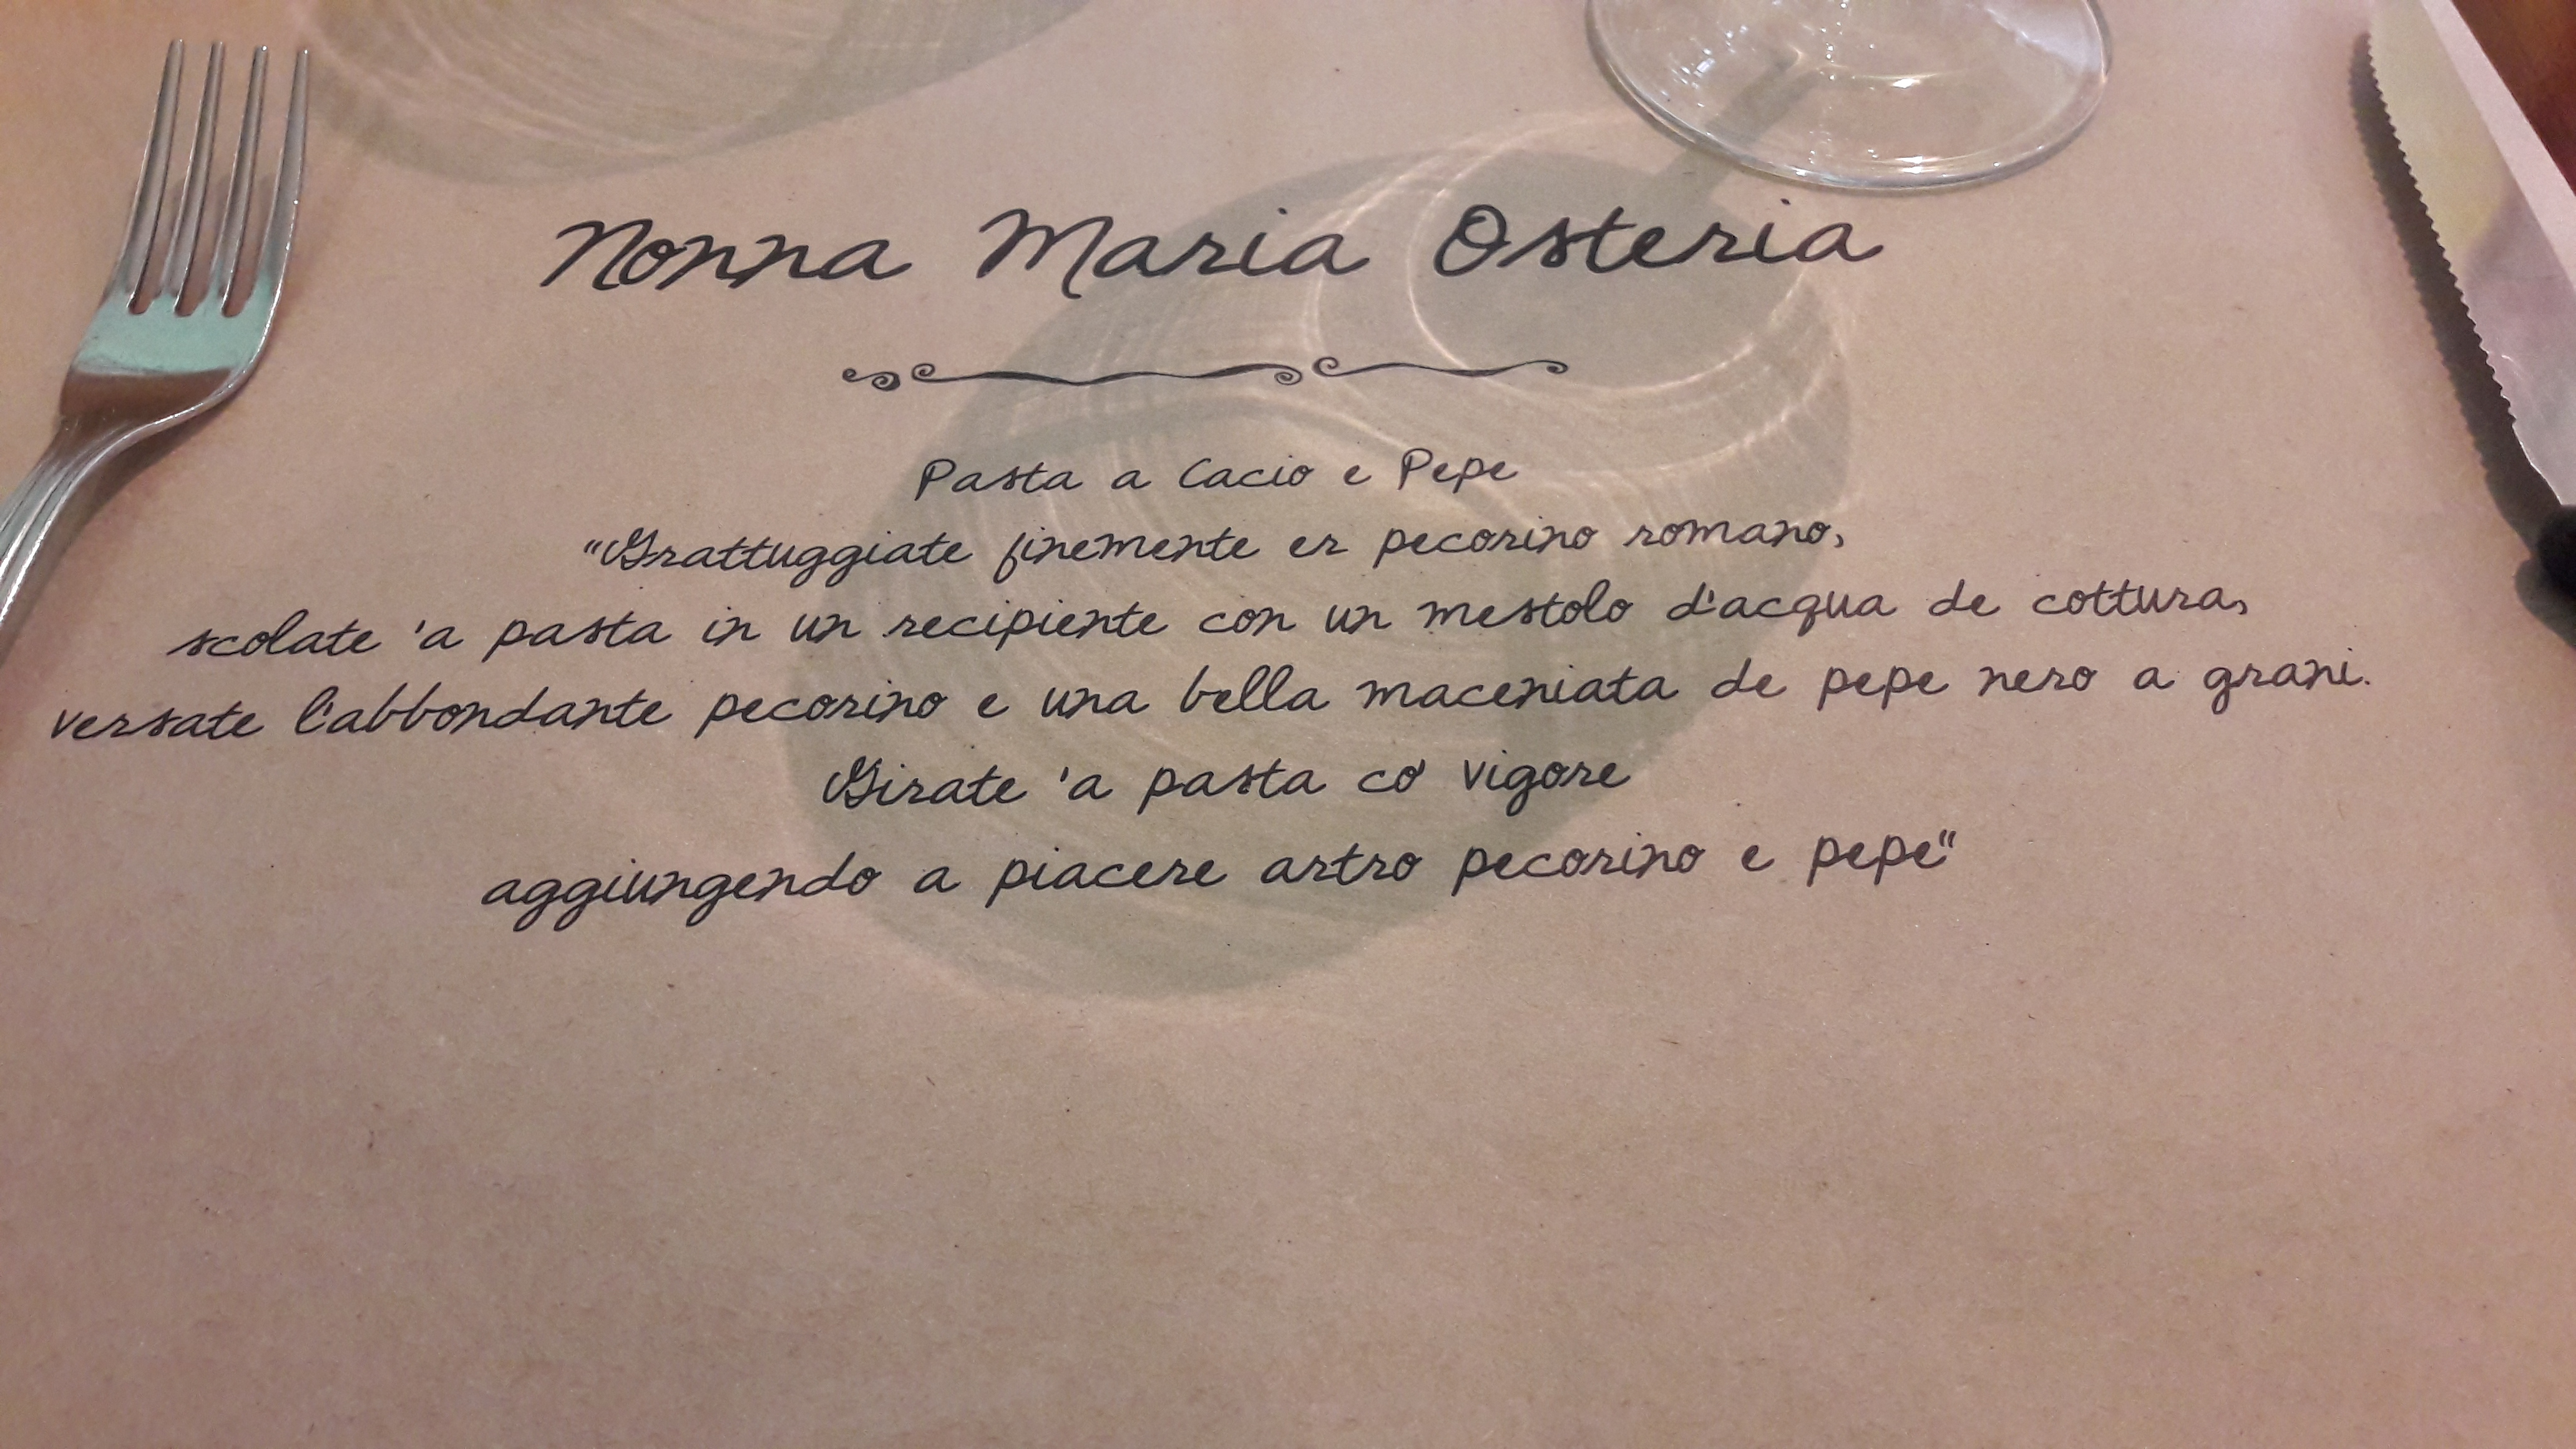 Nonna Maria Osteria
Pasta a Cacio e Pepe
"Grattuggiate finemente er pecorino romano,
scolate 'a pasta in un recipiente con un mestolo d'acqua de cottura,
versate l'abbondante pecorino e una bella maceniata de pepe nero a grani.
Girate 'a pasta co' vigore
aggiungendo a piacere artro pecorino e pepe"